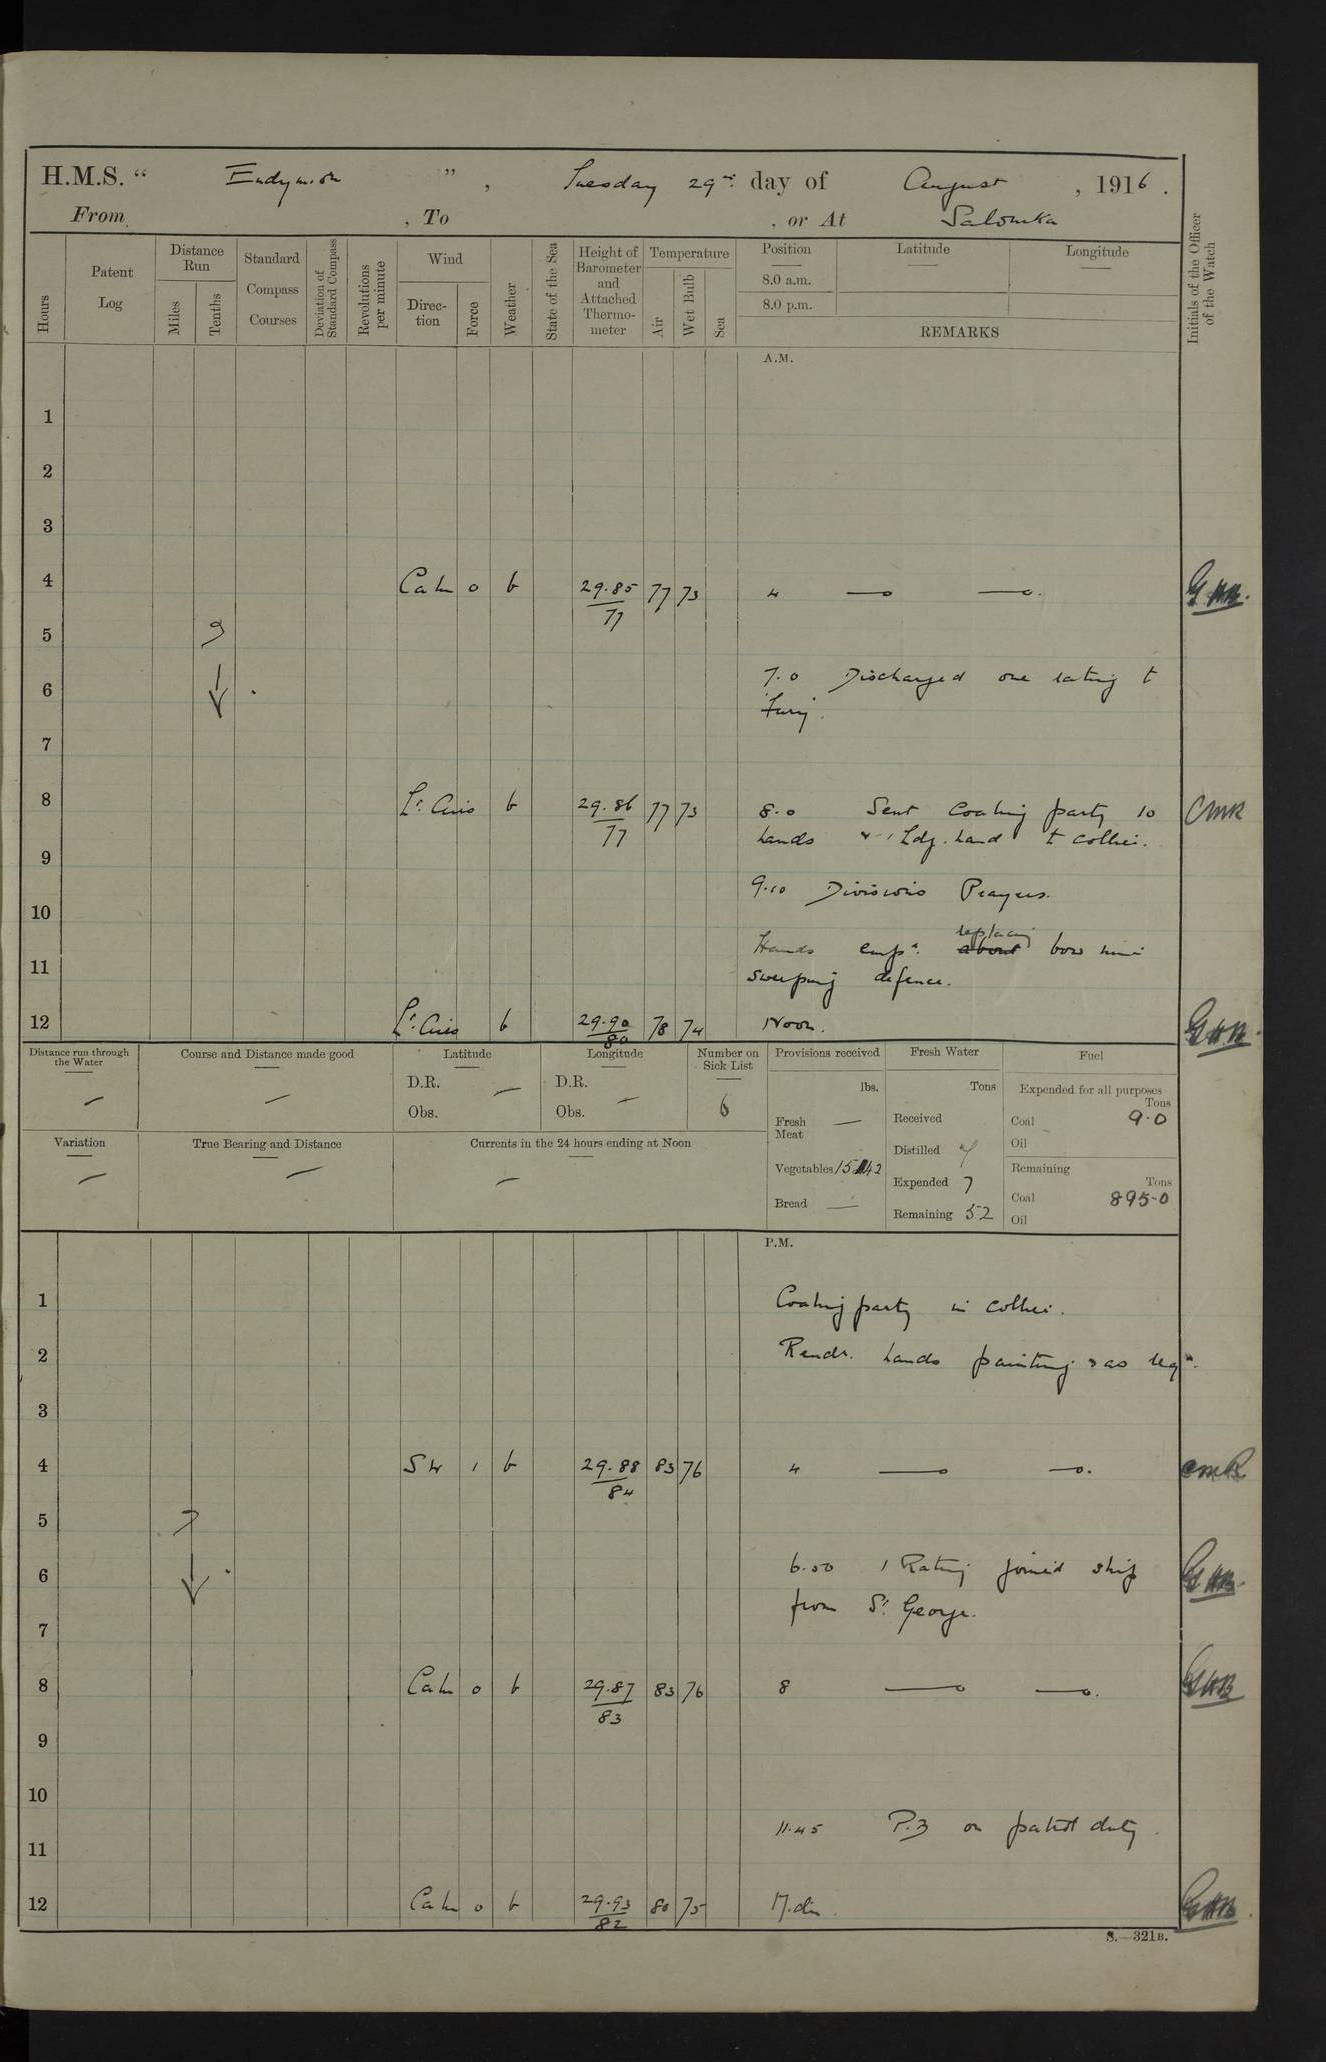 H.M.S. " Endymion ", Tuesday 29th day of August, 1916.
From , To , or At Salonika
Hours
Patent Log
Distance Run
Miles
Tenths
Standard Compass Courses
Deviation of Standard Compass
Revolutions per minute
Wind
Direction
Force
Weather
State of the Sea
Height of Barometer and Attached Thermometer
Temperature
Air
Wet Bulb
Sea
Position
8.0 a.m.
8.0 p.m.
Latitude
Longitude
REMARKS
Initials of the Officer of the Watch
A.M.
1
2
3
4 Calm 0 b 29.85/77 77 73 4 —o —o. GHB.
5
6 7.0 Discharged one rating t
Fury.
7
8 Lt. Airs b 29.86/77 77 73 8.0 Sent Coaling party 10 CMR
hands & 1 Ldg. hand t collier.
9
9.10 Divisions Prayers.
10
Hands emp. about replacing bow mine
11 sweeping defence.
12 Lt. Airs b 29.90/80 78 74 Noon. GHB.
Distance run through the Water —
Course and Distance made good —
Latitude
D.R. —
Obs.
Longitude
D.R. —
Obs.
Number on Sick List
6
Variation —
True Bearing and Distance —
Currents in the 24 hours ending at Noon —
Provisions received
lbs.
Fresh Meat —
Vegetables
Bread —
Fresh Water
Tons
Received
Distilled
Expended 7
Remaining 52
Fuel
Expended for all purposes
Tons
Coal 9.0
Oil
Remaining
Tons
Coal 895.0
Oil
P.M.
1 Coaling party in collier.
2 Remdr. hands painting & as req.
3
4 SW 1 b 29.88/84 83 76 4 —o —o. CMR
5
6 6.50 1 Rating joined ship GHB.
from St. George.
7
8 Calm 0 b 29.87/83 83 76 8 —o —o. GHB
9
10
11.45 P.3 on patrol duty.
11
12 Calm 0 b 29.93/82 80 75 M.dn. GHB.
S.—321B.